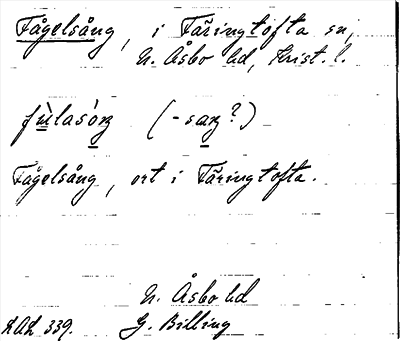 Fågelsång, i Färingtofta sn,
N. Åsbo hd, Krist. l.
(-saŋ?)
Fågelsång, ort i Färingtofta.
N. Åsbo hd
LAL 339. G. Billing